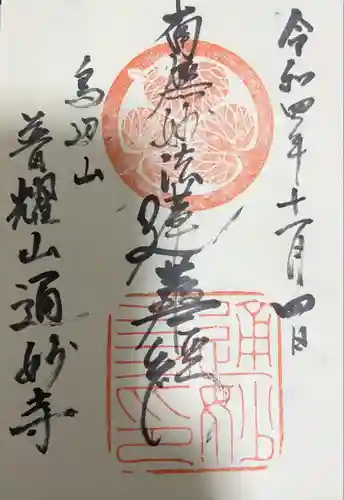 令和四年十一月四日
南無妙法蓮華経
烏羽山
普耀山通妙寺